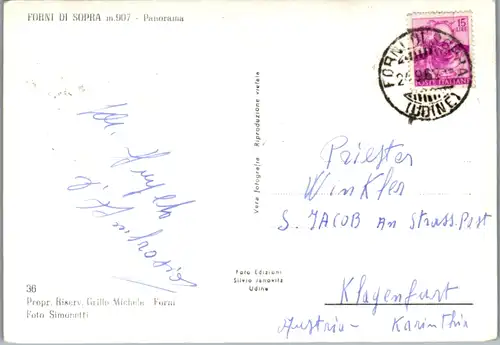 FORNI DI SOPRA m.907 - Panorama
15
POSTE ITALIANE
FORNI DI SOPRA
(UDINE)
Vera fotografia Riproduzione vietata
Priester
Winkler
S. JACOB An Strass. Pest
Klagenfurt
Austria - Karinthia
Foto Edizioni
Silvio Janovitz
Udine
36
Propr. Riserv. Grillo Michele Forni
Foto Simonetti